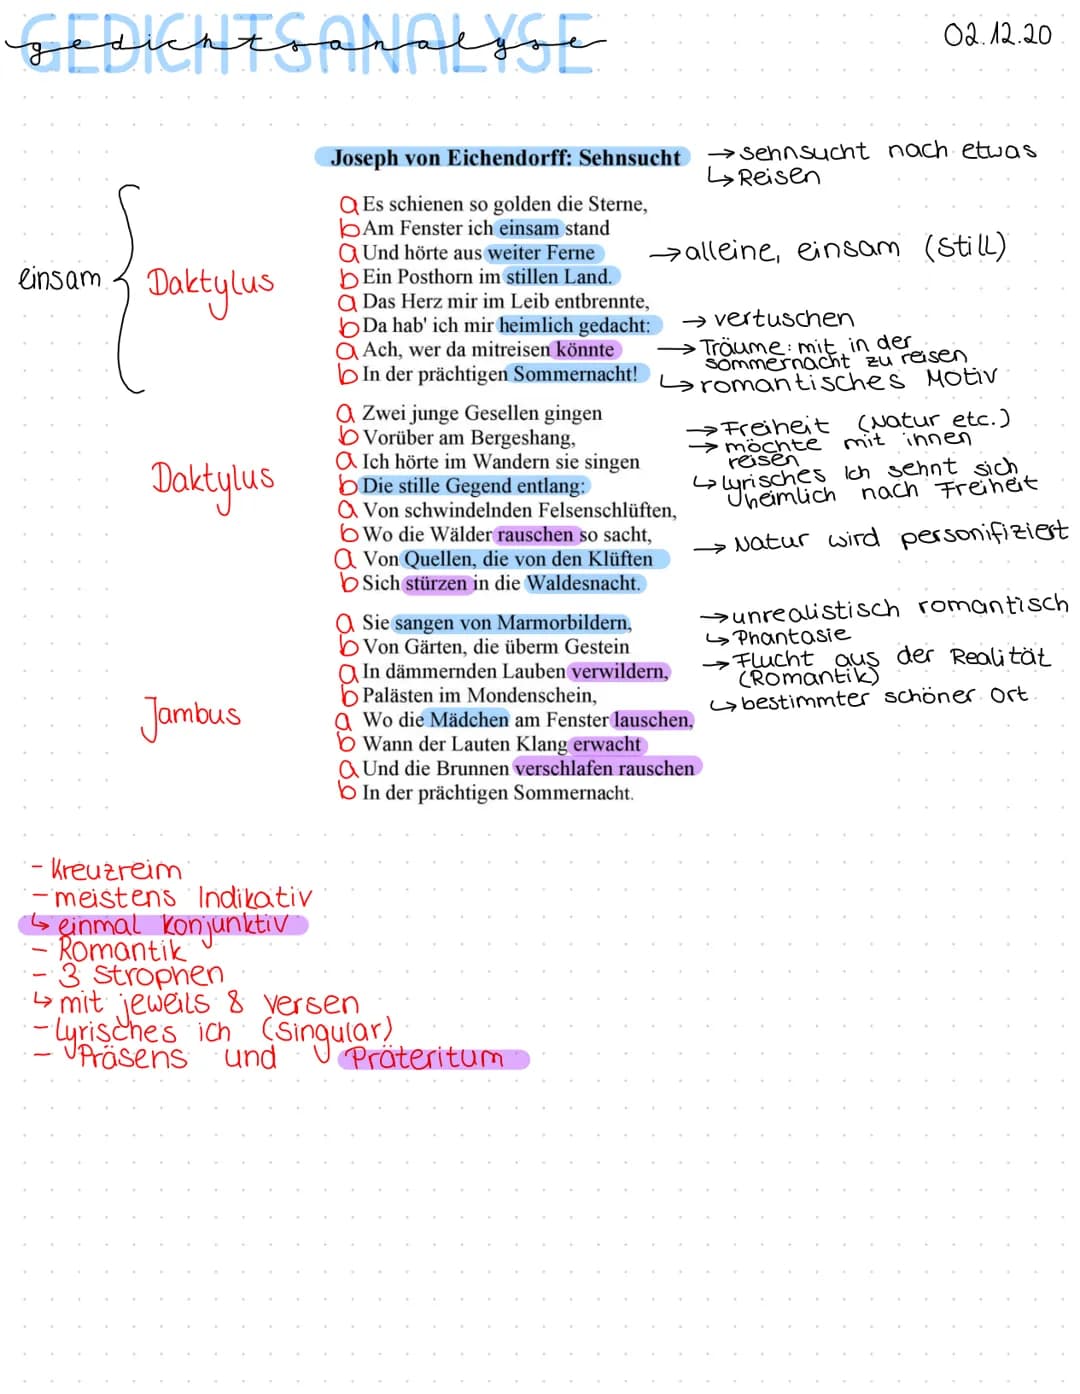 GEDICHTSANALYSE
gedichtsanalyse
02.12.20
Joseph von Eichendorff: Sehnsucht
→ sehnsucht nach etwas
↳ Reisen
einsam
Daktylus
a Es schienen so golden die Sterne,
b Am Fenster ich einsam stand
a Und hörte aus weiter Ferne
→ alleine, einsam (still)
b Ein Posthorn im stillen Land.
a Das Herz mir im Leib entbrennte,
b Da hab' ich mir heimlich gedacht:
→ vertuschen
a Ach, wer da mitreisen könnte
→ Träume: mit in der
sommernacht zu reisen
b In der prächtigen Sommernacht!
↳ romantisches Motiv
Daktylus
a Zwei junge Gesellen gingen
→ Freiheit (Natur etc.)
b Vorüber am Bergeshang,
→ möchte mit ihnen
reisen
a Ich hörte im Wandern sie singen
↳ lyrisches Ich sehnt sich
b Die stille Gegend entlang:
heimlich nach Freiheit
a Von schwindelnden Felsenschlüften,
b Wo die Wälder rauschen so sacht,
→ Natur wird personifiziert
a Von Quellen, die von den Klüften
b Sich stürzen in die Waldesnacht.
Jambus
a Sie sangen von Marmorbildern,
→ unrealistisch romantisch
↳ Phantasie
b Von Gärten, die überm Gestein
→ Flucht aus der Realität
(Romantik)
a In dämmernden Lauben verwildern,
b Palästen im Mondenschein,
↳ bestimmter schöner Ort
a Wo die Mädchen am Fenster lauschen,
b Wann der Lauten Klang erwacht
a Und die Brunnen verschlafen rauschen
b In der prächtigen Sommernacht.
- Kreuzreim
- meistens Indikativ
↳ einmal Konjunktiv
- Romantik
- 3 Strophen
↳ mit jeweils 8 Versen
- Lyrisches ich (Singular)
- Präsens und Präteritum